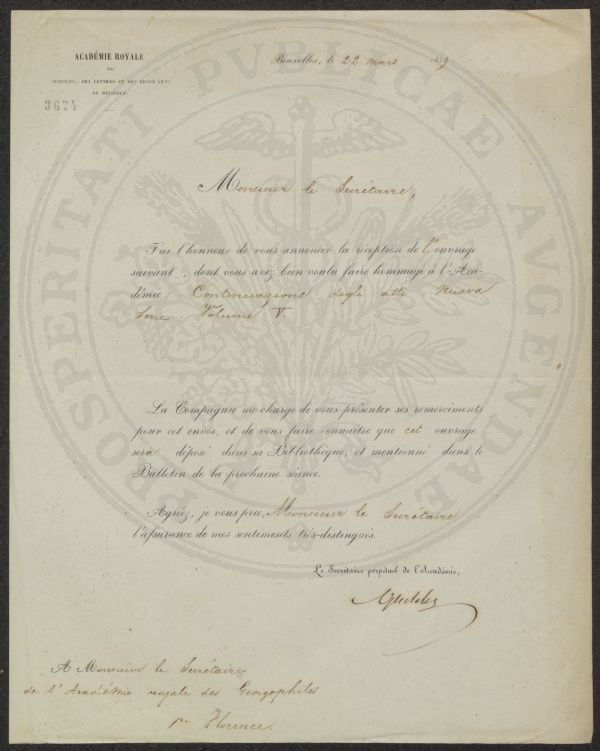 ACADÉMIE ROYALE
des
SCIENCES, DES LETTRES ET DES BEAUX-ARTS
DE BELGIQUE.
3674
Bruxelles, le 22 mars 1859
Monsieur le Secrétaire,
J'ai l'honneur de vous annoncer la réception de l'ouvrage
suivant, dont vous avez bien voulu faire hommage à l'Aca-
démie: Continuazione degli atti Nuova
Serie. Volume V.
La Compagnie me charge de vous présenter ses remerciments
pour cet envoi, et de vous faire connaître que cet ouvrage
sera déposé dans sa Bibliothèque, et mentionné dans le
Bulletin de la prochaine séance.
Agréez, je vous prie, Monsieur le Secrétaire
l'assurance de mes sentiments très-distingués.
Le Secrétaire perpétuel de l'Académie,
A Monsieur le Secrétaire
de l'Académie royale des Georgophiles
Florence.
PROSPERITATI PUBLICAE AUGENDAE